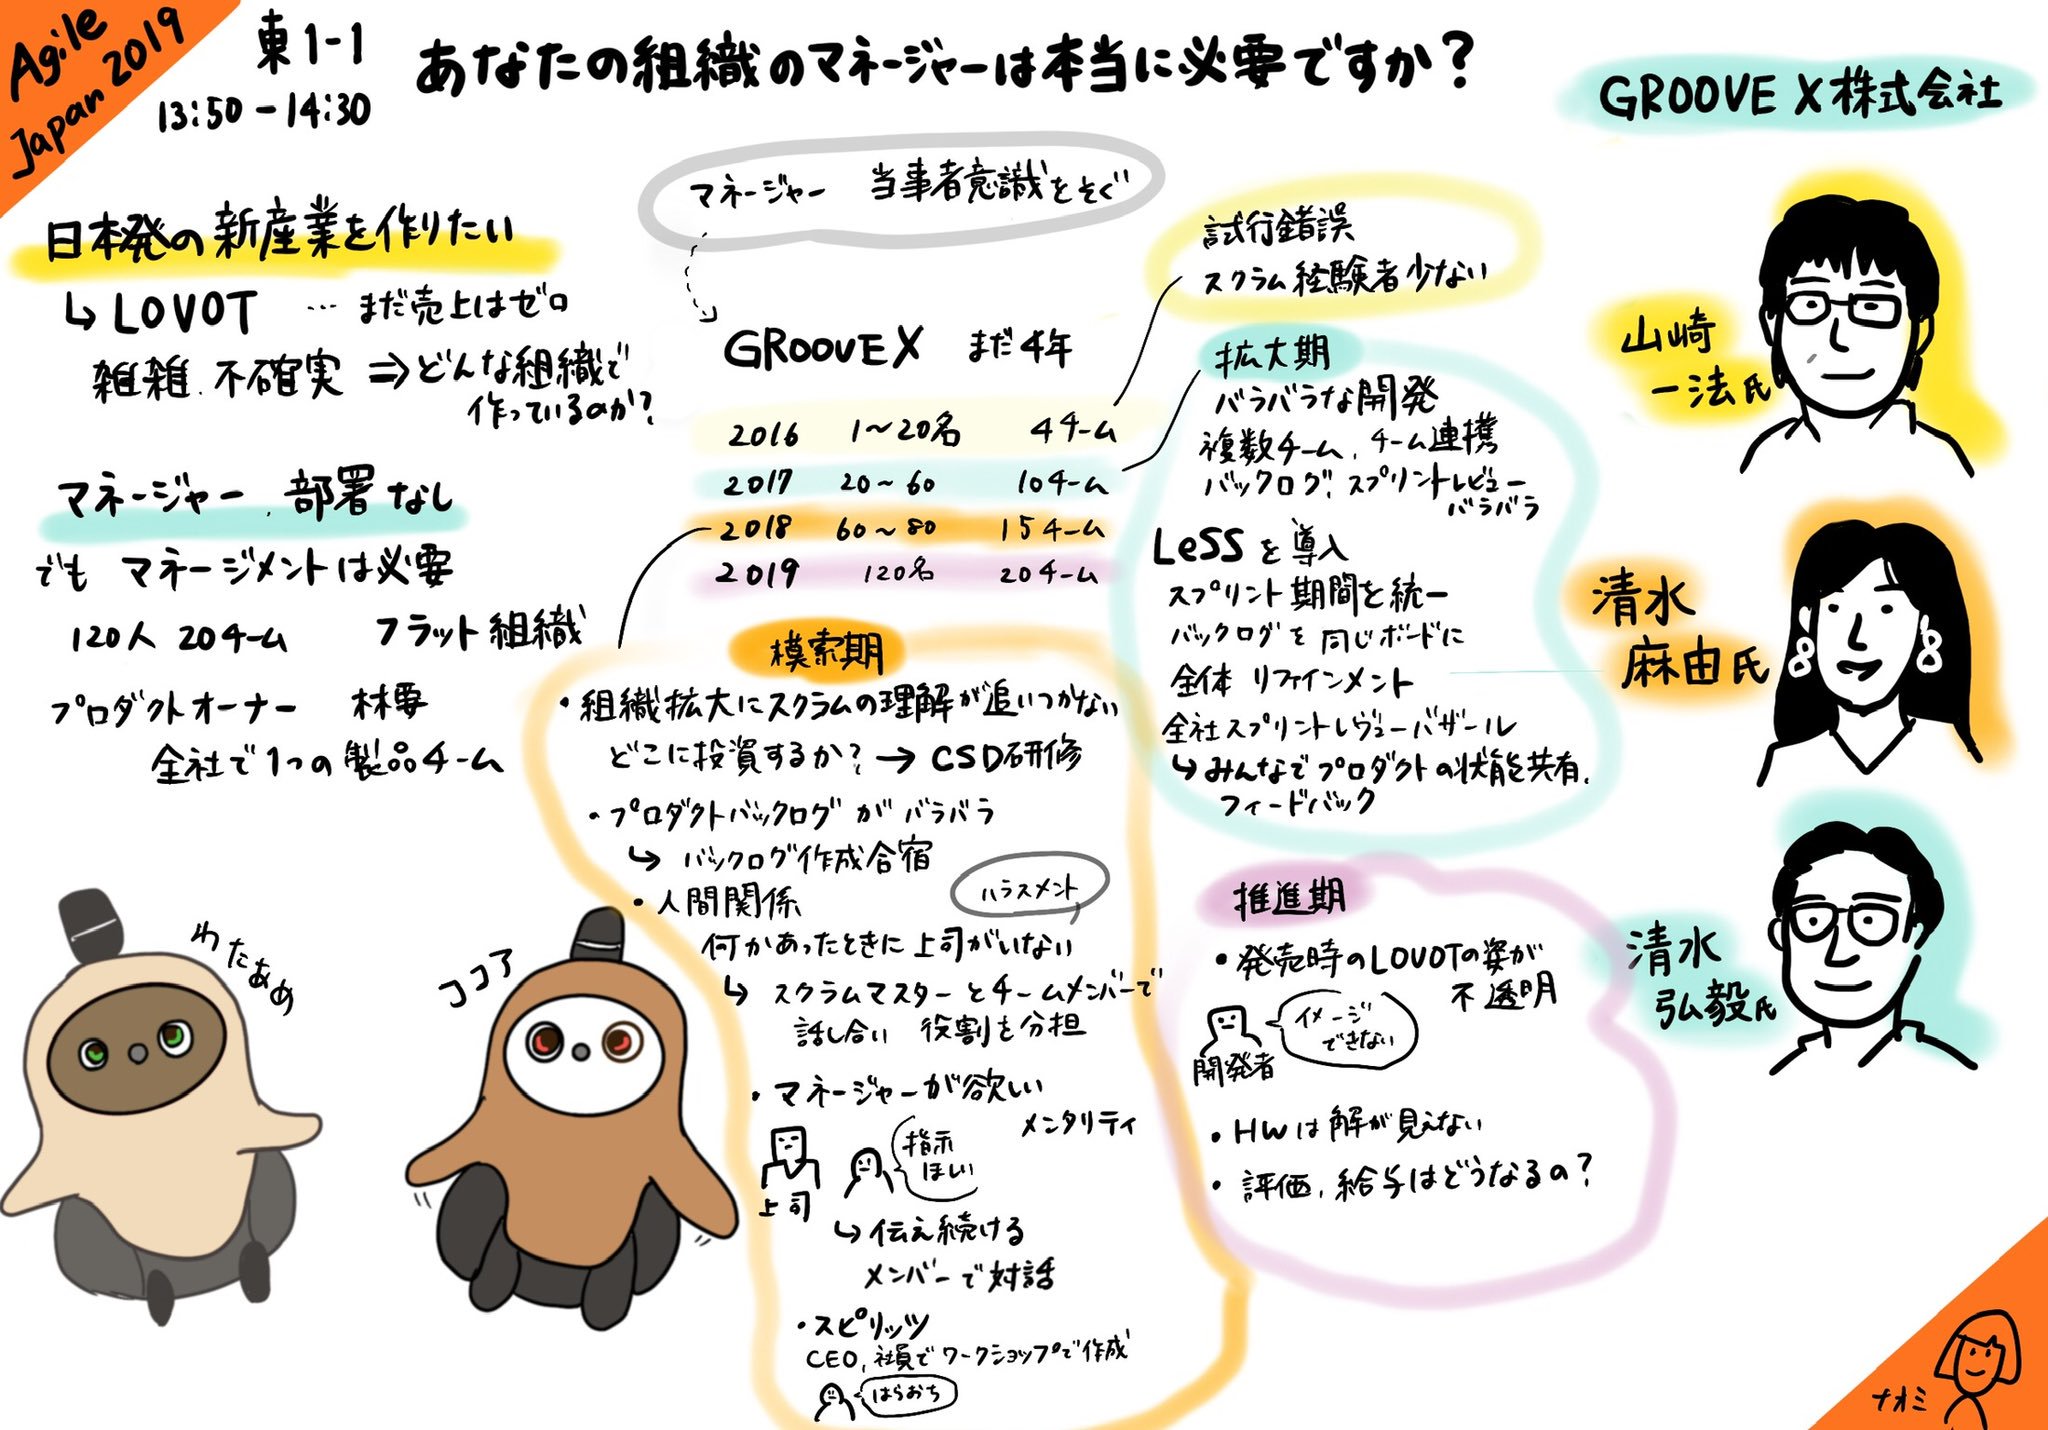 Agile
Japan 2019
東1-1
13:50-14:30
あなたの組織のマネージャーは本当に必要ですか?
GROOVE X 株式会社
日本発の新産業を作りたい
↳ LOVOT … まだ売上はゼロ
雑雑、不確実 ⇒ どんな組織で
作っているのか?
マネージャー、部署なし
でも マネージメントは必要
120人 20チーム フラット組織
プロダクトオーナー 林要
全社で1つの製品チーム
わたあめ
ココア
マネージャー 当事者意識をそぐ
GROOVE X まだ4年
2016 1〜20名 4チーム
2017 20〜60 10チーム
2018 60〜80 15チーム
2019 120名 20チーム
模索期
・組織拡大にスクラムの理解が追いつかない
どこに投資するか? → CSD研修
・プロダクトバックログがバラバラ
↳ バックログ作成合宿
・人間関係
ハラスメント
何かあったときに上司がいない
↳ スクラムマスターとチームメンバーで
話し合い 役割を分担
・マネージャーが欲しい
メンタリティ
上司
指示
ほしい
↳ 伝え続ける
メンバーで対話
・スピリッツ
CEO、社員でワークショップで作成
はらおち
試行錯誤
スクラム経験者少ない
拡大期
バラバラな開発
複数チーム、チーム連携
バックログ、スプリントレビュー
バラバラ
LeSSを導入
スプリント期間を統一
バックログを同じボードに
全体リファインメント
全社スプリントレヴューバザール
↳ みんなでプロダクトの状態を共有、
フィードバック
推進期
・発売時のLOVOTの姿が
不透明
イメージ
できない
開発者
・HWは解が見えない
・評価、給与はどうなるの?
山崎
一法氏
清水
麻由氏
清水
弘毅氏
ナオミ